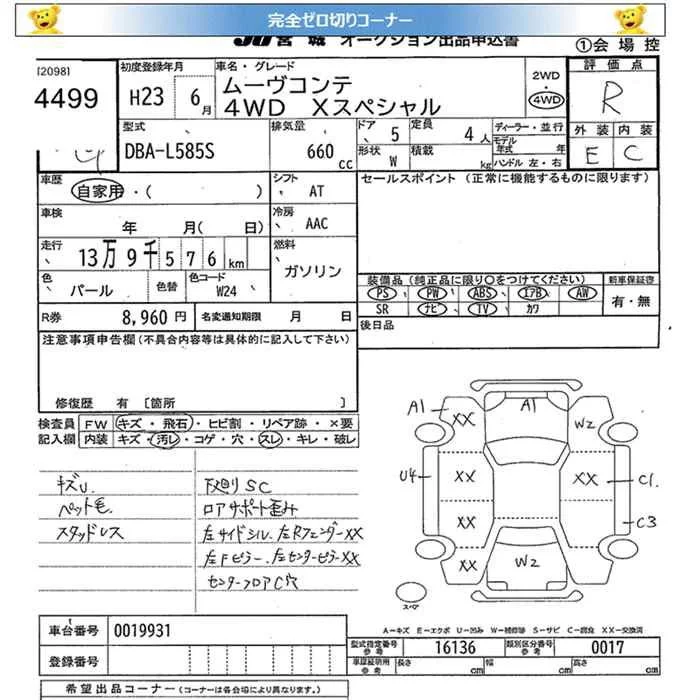 完全ゼロ切りコーナー
JU宮城 オークション出品申込書
①会場控
[2098]
4499
初度登録年月
H23 6月
車名・グレード
ムーヴコンテ
4WD Xスペシャル
2WD
4WD
評価点
R
外装 内装
E C
型式
DBA-L585S
排気量
660 cc
ドア 5
定員 4人
形状 W
積載 kg
ディーラー・並行
モデル年式 年
ハンドル 左・右
車歴
自家用・( )
シフト AT
車検
年 月( 日)
冷房 AAC
走行
13万9千576km
燃料
ガソリン
色
パール
色替
色コード
W24
セールスポイント (正常に機能するものに限ります)
装備品 (純正品に限り○をつけてください)
新車保証書
PS PW ABS エアB AW
SR ナビ TV カワ
有・無
R券 8,960円
名変通知期限 月 日
後日品
注意事項申告欄(不具合内容等は具体的に記入して下さい)
修復歴 有 [箇所 ]
検査員記入欄
FW キズ・飛石・ヒビ割・リペア跡・×要
内装 キズ・汚レ・コゲ・穴・スレ・キレ・破レ
キズU.
ペット毛.
スタッドレス
下廻りSC
ロアサポート歪み
左サイドシル.左Rフェンダー××
左Fピラー.左センターピラー××
センターフロアC穴
A1 XX A1 W2
U4 XX XX C1
XX C3
XX W2
スペア
A―キズ E―エクボ U―凹み W―補修跡 S―サビ C―腐食 XX―交換済
車台番号 0019931
登録番号
型式指定番号 参考 16136
類別区分番号 参考 0017
車庫証明用 参考 長さ cm 幅 cm 高さ cm
希望出品コーナー (コーナーは各会場により異なります。)